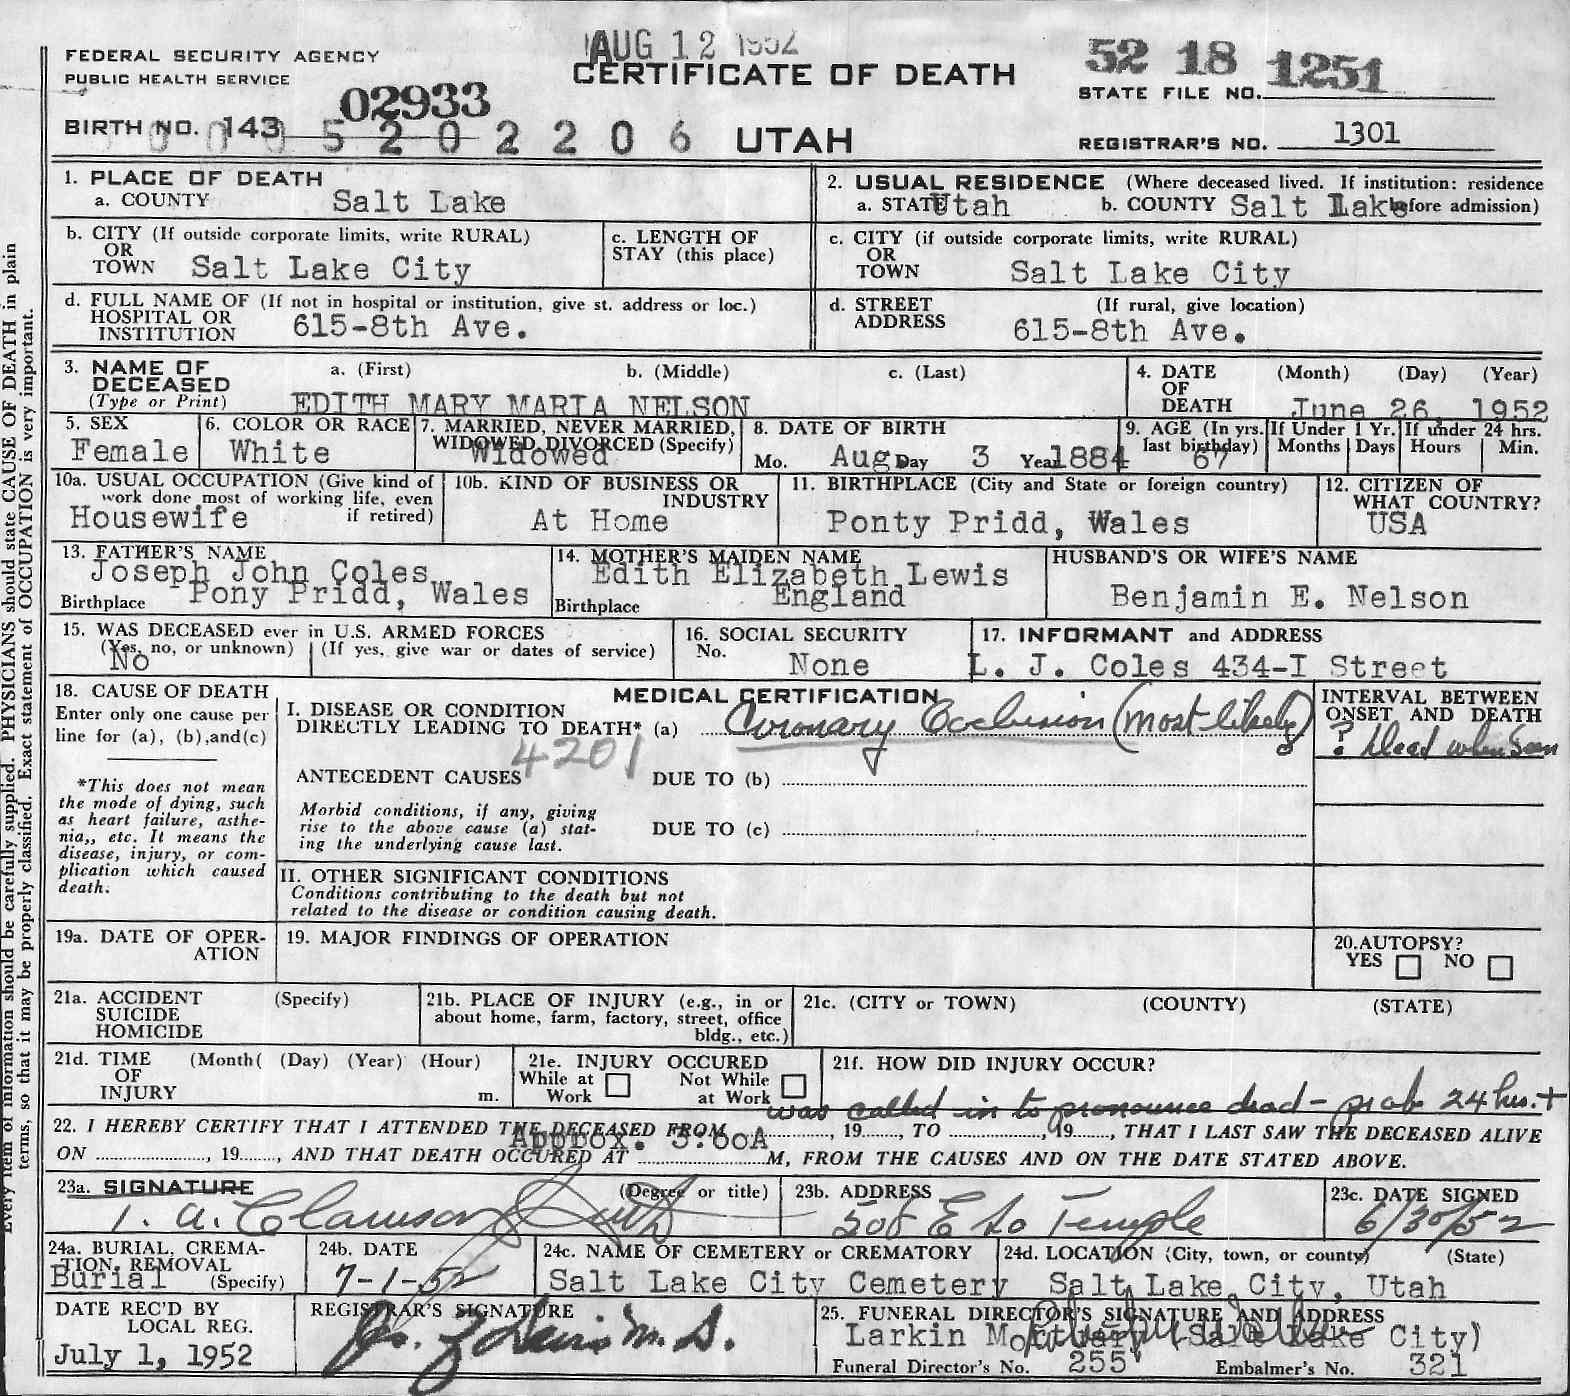 AUG 12 1952
FEDERAL SECURITY AGENCY
PUBLIC HEALTH SERVICE
CERTIFICATE OF DEATH
52 18 1251
STATE FILE NO.
02933
BIRTH NO. 143
5202206
UTAH
REGISTRAR'S NO. 1301
1. PLACE OF DEATH
a. COUNTY Salt Lake
2. USUAL RESIDENCE (Where deceased lived. If institution: residence before admission)
a. STATE Utah b. COUNTY Salt Lake
b. CITY (If outside corporate limits, write RURAL)
OR
TOWN Salt Lake City
c. LENGTH OF
STAY (this place)
c. CITY (if outside corporate limits, write RURAL)
OR
TOWN Salt Lake City
d. FULL NAME OF (If not in hospital or institution, give st. address or loc.)
HOSPITAL OR
INSTITUTION 615-8th Ave.
d. STREET (If rural, give location)
ADDRESS 615-8th Ave.
3. NAME OF a. (First) b. (Middle) c. (Last)
DECEASED
(Type or Print) EDITH MARY MARIA NELSON
4. DATE (Month) (Day) (Year)
OF
DEATH June 26, 1952
5. SEX
Female
6. COLOR OR RACE
White
7. MARRIED, NEVER MARRIED,
WIDOWED, DIVORCED (Specify)
Widowed
8. DATE OF BIRTH
Mo. Aug Day 3 Year 1884
9. AGE (In yrs. last birthday) 67
If Under 1 Yr. Months Days
If under 24 hrs. Hours Min.
10a. USUAL OCCUPATION (Give kind of
work done most of working life, even
if retired)
Housewife
10b. KIND OF BUSINESS OR
INDUSTRY
At Home
11. BIRTHPLACE (City and State or foreign country)
Ponty Pridd, Wales
12. CITIZEN OF
WHAT COUNTRY?
USA
13. FATHER'S NAME
Joseph John Coles
Birthplace Pony Pridd, Wales
14. MOTHER'S MAIDEN NAME
Edith Elizabeth Lewis
Birthplace England
HUSBAND'S OR WIFE'S NAME
Benjamin E. Nelson
15. WAS DECEASED ever in U.S. ARMED FORCES
(Yes, no, or unknown) (If yes, give war or dates of service)
No
16. SOCIAL SECURITY
No. None
17. INFORMANT and ADDRESS
L. J. Coles 434-I Street
18. CAUSE OF DEATH
Enter only one cause per
line for (a), (b),and(c)
*This does not mean
the mode of dying, such
as heart failure, asthe-
nia,, etc. It means the
disease, injury, or com-
plication which caused
death.
MEDICAL CERTIFICATION
I. DISEASE OR CONDITION
DIRECTLY LEADING TO DEATH* (a) Coronary Occlusion (most likely)
4201
ANTECEDENT CAUSES DUE TO (b)
Morbid conditions, if any, giving
rise to the above cause (a) stat-
ing the underlying cause last.
DUE TO (c)
INTERVAL BETWEEN
ONSET AND DEATH
? dead when seen
II. OTHER SIGNIFICANT CONDITIONS
Conditions contributing to the death but not
related to the disease or condition causing death.
19a. DATE OF OPER-
ATION
19. MAJOR FINDINGS OF OPERATION
20.AUTOPSY?
YES NO
21a. ACCIDENT (Specify)
SUICIDE
HOMICIDE
21b. PLACE OF INJURY (e.g., in or
about home, farm, factory, street, office
bldg., etc.)
21c. (CITY or TOWN) (COUNTY) (STATE)
21d. TIME (Month( (Day) (Year) (Hour)
OF
INJURY m.
21e. INJURY OCCURED
While at Work Not While at Work
21f. HOW DID INJURY OCCUR?
was called in to pronounce dead - prob 24 hrs. +
22. I HEREBY CERTIFY THAT I ATTENDED THE DECEASED FROM , 19 , TO , 19 , THAT I LAST SAW THE DECEASED ALIVE
ON , 19 , AND THAT DEATH OCCURED AT Approx. 3:00A M, FROM THE CAUSES AND ON THE DATE STATED ABOVE.
23a. SIGNATURE (Degree or title)
Clawson Smith
23b. ADDRESS
508 E So Temple
23c. DATE SIGNED
6/30/52
24a. BURIAL, CREMA-
TION, REMOVAL
Burial (Specify)
24b. DATE
7-1-52
24c. NAME OF CEMETERY or CREMATORY
Salt Lake City Cemetery
24d. LOCATION (City, town, or county) (State)
Salt Lake City, Utah
DATE REC'D BY
LOCAL REG.
July 1, 1952
REGISTRAR'S SIGNATURE
M.D.
25. FUNERAL DIRECTOR'S SIGNATURE AND ADDRESS
Larkin Mortuary (Salt Lake City)
Funeral Director's No. 255 Embalmer's No. 321
Every item of information should be carefully supplied. PHYSICIANS should state CAUSE OF DEATH in plain
terms, so that it may be properly classified. Exact statement of OCCUPATION is very important.